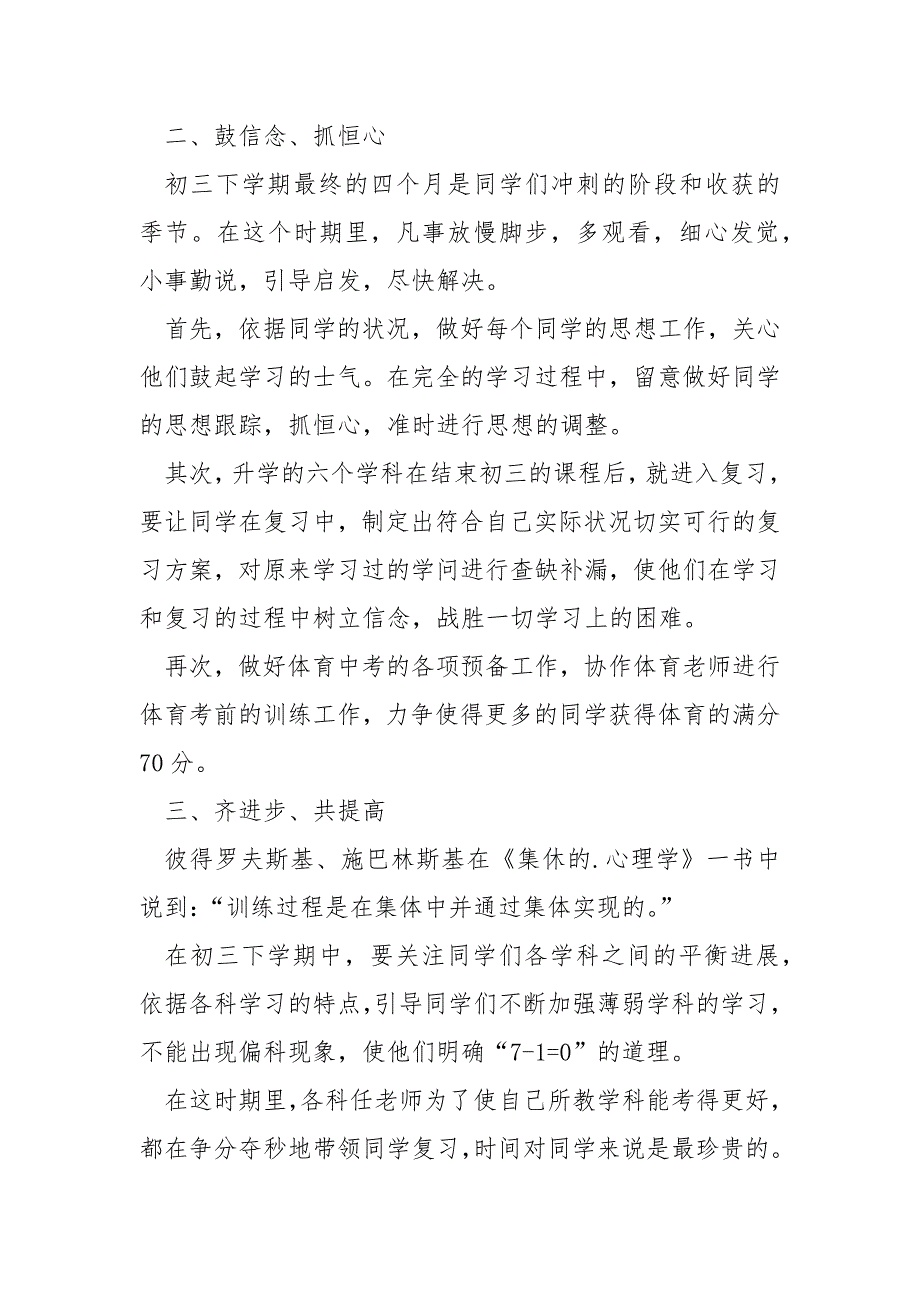 二、鼓信念、抓恒心
初三下学期最终的四个月是同学们冲刺的阶段和收获的
季节。在这个时期里，凡事放慢脚步，多观看，细心发觉，
小事勤说，引导启发，尽快解决。
首先，依据同学的状况，做好每个同学的思想工作，关心
他们鼓起学习的士气。在完全的学习过程中，留意做好同学
的思想跟踪，抓恒心，准时进行思想的调整。
其次，升学的六个学科在结束初三的课程后，就进入复习，
要让同学在复习中，制定出符合自己实际状况切实可行的复
习方案，对原来学习过的学问进行查缺补漏，使他们在学习
和复习的过程中树立信念，战胜一切学习上的困难。
再次，做好体育中考的各项预备工作，协作体育老师进行
体育考前的训练工作，力争使得更多的同学获得体育的满分
70 分。
三、齐进步、共提高
彼得罗夫斯基、施巴林斯基在《集休的.心理学》一书中
说到：“训练过程是在集体中并通过集体实现的。”
在初三下学期中，要关注同学们各学科之间的平衡进展，
依据各科学习的特点，引导同学们不断加强薄弱学科的学习，
不能出现偏科现象，使他们明确“7-1=0”的道理。
在这时期里，各科任老师为了使自己所教学科能考得更好，
都在争分夺秒地带领同学复习，时间对同学来说是最珍贵的。